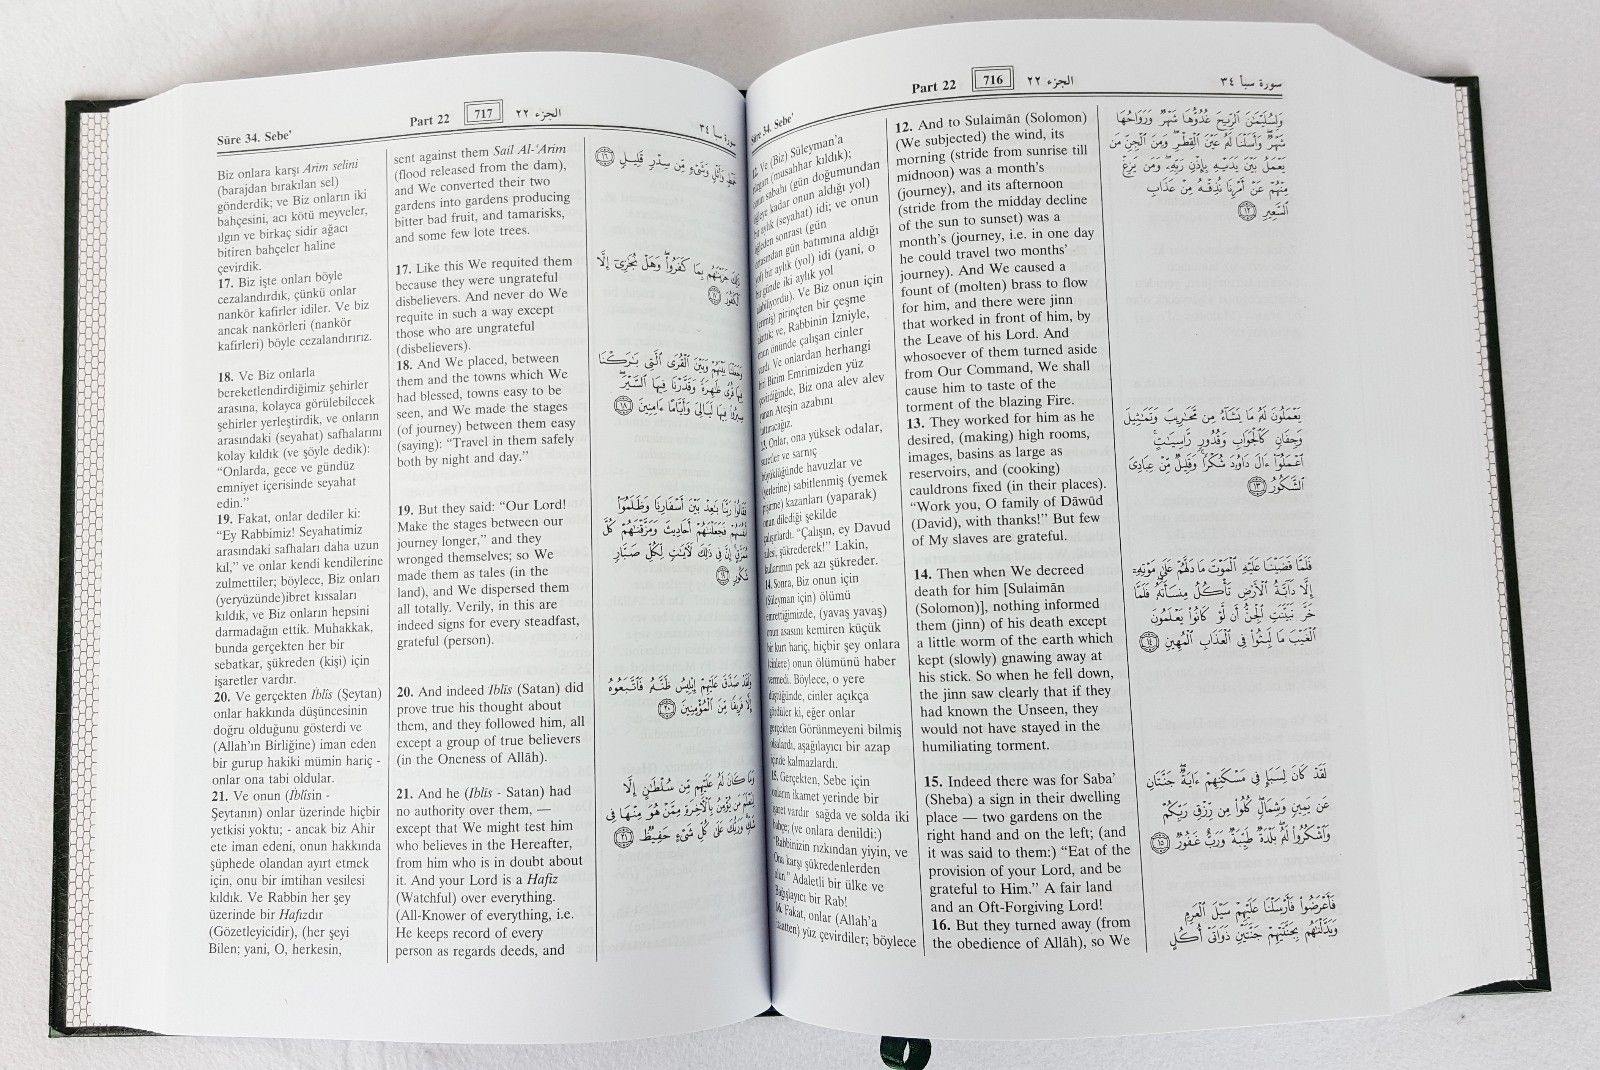 Sûre 34. Sebe'
Part 22
716
الجزء ٢٢
سورة سبأ ٣٤
12. Ve (Biz) Süleyman'a
(musahhar kıldık);
sabahı (gün doğumundan
kadar onun aldığı yol)
aylık (seyahat) idi; ve onun
sonrası (gün
gün batımına aldığı
bir aylık (yol) idi (yani, o
günde iki aylık yol
Ve Biz onun için
pirinçten bir çeşme
ve, Rabbinin İzniyle,
önünde çalışan cinler
Ve onlardan herhangi
Bizim Emrimizden yüz
Biz ona alev alev
Ateşin azabını
13. Onlar, ona yüksek odalar,
ve sarnıç
büyüklüğünde havuzlar ve
sabitlenmiş (yemek
kazanları (yaparak)
dilediği şekilde
“Çalışın, ey Davud
şükrederek!” Lakin,
kullarımın pek azı şükreder.
14. Sonra, Biz onun için
(Süleyman için) ölümü
emrettiğimizde, (yavaş yavaş)
onun asasını kemiren küçük
bir kurt hariç, hiçbir şey onlara
onun ölümünü haber
vermedi. Böylece, o yere
düştüğünde, cinler açıkça
gördüler ki, eğer onlar
gerçekten Görünmeyeni bilmiş
olsalardı, aşağılayıcı bir azap
içinde kalmazlardı.
15. Gerçekten, Sebe için
onların ikamet yerinde bir
işaret vardır sağda ve solda iki
bahçe; (ve onlara denildi:)
“Rabbinizin rızkından yiyin, ve
Ona karşı şükredenlerden
olun.” Adaletli bir ülke ve
Bağışlayıcı bir Rab!
16. Fakat, onlar (Allah'a
itaatten) yüz çevirdiler; böylece
12. And to Sulaimān (Solomon)
(We subjected) the wind, its
morning (stride from sunrise till
midnoon) was a month's
(journey), and its afternoon
(stride from the midday decline
of the sun to sunset) was a
month's (journey, i.e. in one day
he could travel two months'
journey). And We caused a
fount of (molten) brass to flow
for him, and there were jinn
that worked in front of him, by
the Leave of his Lord. And
whosoever of them turned aside
from Our Command, We shall
cause him to taste of the
torment of the blazing Fire.
13. They worked for him as he
desired, (making) high rooms,
images, basins as large as
reservoirs, and (cooking)
cauldrons fixed (in their places).
“Work you, O family of Dāwūd
(David), with thanks!” But few
of My slaves are grateful.
14. Then when We decreed
death for him [Sulaimān
(Solomon)], nothing informed
them (jinn) of his death except
a little worm of the earth which
kept (slowly) gnawing away at
his stick. So when he fell down,
the jinn saw clearly that if they
had known the Unseen, they
would not have stayed in the
humiliating torment.
15. Indeed there was for Saba'
(Sheba) a sign in their dwelling
place — two gardens on the
right hand and on the left; (and
it was said to them:) “Eat of the
provision of your Lord, and be
grateful to Him.” A fair land
and an Oft-Forgiving Lord!
16. But they turned away (from
the obedience of Allāh), so We
وَلِسُلَيْمَٰنَ ٱلرِّيحَ غُدُوُّهَا شَهْرٌ وَرَوَاحُهَا
شَهْرٌ وَأَسَلْنَا لَهُۥ عَيْنَ ٱلْقِطْرِ وَمِنَ ٱلْجِنِّ مَن
يَعْمَلُ بَيْنَ يَدَيْهِ بِإِذْنِ رَبِّهِۦ وَمَن يَزِغْ
مِنْهُمْ عَنْ أَمْرِنَا نُذِقْهُ مِنْ عَذَابِ
ٱلسَّعِيرِ ١٢
يَعْمَلُونَ لَهُۥ مَا يَشَآءُ مِن مَّحَٰرِيبَ وَتَمَٰثِيلَ
وَجِفَانٍ كَٱلْجَوَابِ وَقُدُورٍ رَّاسِيَٰتٍ
ٱعْمَلُوٓا۟ ءَالَ دَاوُۥدَ شُكْرًا وَقَلِيلٌ مِّنْ عِبَادِىَ
ٱلشَّكُورُ ١٣
فَلَمَّا قَضَيْنَا عَلَيْهِ ٱلْمَوْتَ مَا دَلَّهُمْ عَلَىٰ مَوْتِهِۦٓ
إِلَّا دَآبَّةُ ٱلْأَرْضِ تَأْكُلُ مِنسَأَتَهُۥ فَلَمَّا
خَرَّ تَبَيَّنَتِ ٱلْجِنُّ أَن لَّوْ كَانُوا۟ يَعْلَمُونَ
ٱلْغَيْبَ مَا لَبِثُوا۟ فِى ٱلْعَذَابِ ٱلْمُهِينِ ١٤
لَقَدْ كَانَ لِسَبَإٍ فِى مَسْكَنِهِمْ ءَايَةٌ جَنَّتَانِ
عَن يَمِينٍ وَشِمَالٍ كُلُوا۟ مِن رِّزْقِ رَبِّكُمْ
وَٱشْكُرُوا۟ لَهُۥ بَلْدَةٌ طَيِّبَةٌ وَرَبٌّ غَفُورٌ ١٥
فَأَعْرَضُوا۟ فَأَرْسَلْنَا عَلَيْهِمْ سَيْلَ ٱلْعَرِمِ
وَبَدَّلْنَٰهُم بِجَنَّتَيْهِمْ جَنَّتَيْنِ ذَوَاتَىْ أُكُلٍ
Sûre 34. Sebe'
Part 22
717
الجزء ٢٢
سورة سبأ ٣٤
Biz onlara karşı Arim selini
(barajdan bırakılan sel)
gönderdik; ve Biz onların iki
bahçesini, acı kötü meyveler,
ılgın ve birkaç sidir ağacı
bitiren bahçeler haline
çevirdik.
17. Biz işte onları böyle
cezalandırdık, çünkü onlar
nankör kafirler idiler. Ve biz
ancak nankörleri (nankör
kafirleri) böyle cezalandırırız.
18. Ve Biz onlarla
bereketlendirdiğimiz şehirler
arasına, kolayca görülebilecek
şehirler yerleştirdik, ve onların
arasındaki (seyahat) safhalarını
kolay kıldık (ve şöyle dedik):
“Onlarda, gece ve gündüz
emniyet içerisinde seyahat
edin.”
19. Fakat, onlar dediler ki:
“Ey Rabbimiz! Seyahatimiz
arasındaki safhaları daha uzun
kıl,” ve onlar kendi kendilerine
zulmettiler; böylece, Biz onları
(yeryüzünde)ibret kıssaları
kıldık, ve Biz onların hepsini
darmadağın ettik. Muhakkak,
bunda gerçekten her bir
sebatkar, şükreden (kişi) için
işaretler vardır.
20. Ve gerçekten Iblîs (Şeytan)
onlar hakkında düşüncesinin
doğru olduğunu gösterdi ve
(Allah'ın Birliğine) iman eden
bir gurup hakiki mümin hariç -
onlar ona tabi oldular.
21. Ve onun (Iblîsin -
Şeytanın) onlar üzerinde hiçbir
yetkisi yoktu; - ancak biz Ahir
ete iman edeni, onun hakkında
şüphede olandan ayırt etmek
için, onu bir imtihan vesilesi
kıldık. Ve Rabbin her şey
üzerinde bir Hafızdır
(Gözetleyicidir), (her şeyi
Bilen; yani, O, herkesin,
sent against them Sail Al-'Arim
(flood released from the dam),
and We converted their two
gardens into gardens producing
bitter bad fruit, and tamarisks,
and some few lote trees.
17. Like this We requited them
because they were ungrateful
disbelievers. And never do We
requite in such a way except
those who are ungrateful
(disbelievers).
18. And We placed, between
them and the towns which We
had blessed, towns easy to be
seen, and We made the stages
(of journey) between them easy
(saying): “Travel in them safely
both by night and day.”
19. But they said: “Our Lord!
Make the stages between our
journey longer,” and they
wronged themselves; so We
made them as tales (in the
land), and We dispersed them
all totally. Verily, in this are
indeed signs for every steadfast,
grateful (person).
20. And indeed Iblîs (Satan) did
prove true his thought about
them, and they followed him, all
except a group of true believers
(in the Oneness of Allāh).
21. And he (Iblîs - Satan) had
no authority over them, —
except that We might test him
who believes in the Hereafter,
from him who is in doubt about
it. And your Lord is a Hafiz
(Watchful) over everything.
(All-Knower of everything, i.e.
He keeps record of every
person as regards deeds, and
خَمْطٍ وَأَثْلٍ وَشَىْءٍ مِّن سِدْرٍ قَلِيلٍ ١٦
ذَٰلِكَ جَزَيْنَٰهُم بِمَا كَفَرُوا۟ وَهَلْ نُجَٰزِىٓ إِلَّا
ٱلْكَفُورَ ١٧
وَجَعَلْنَا بَيْنَهُمْ وَبَيْنَ ٱلْقُرَى ٱلَّتِى بَٰرَكْنَا
فِيهَا قُرًى ظَٰهِرَةً وَقَدَّرْنَا فِيهَا ٱلسَّيْرَ
سِيرُوا۟ فِيهَا لَيَالِىَ وَأَيَّامًا ءَامِنِينَ ١٨
فَقَالُوا۟ رَبَّنَا بَٰعِدْ بَيْنَ أَسْفَارِنَا وَظَلَمُوٓا۟
أَنفُسَهُمْ فَجَعَلْنَٰهُمْ أَحَادِيثَ وَمَزَّقْنَٰهُمْ كُلَّ
مُمَزَّقٍ إِنَّ فِى ذَٰلِكَ لَءَايَٰتٍ لِّكُلِّ صَبَّارٍ
شَكُورٍ ١٩
وَلَقَدْ صَدَّقَ عَلَيْهِمْ إِبْلِيسُ ظَنَّهُۥ فَٱتَّبَعُوهُ
إِلَّا فَرِيقًا مِّنَ ٱلْمُؤْمِنِينَ ٢٠
وَمَا كَانَ لَهُۥ عَلَيْهِم مِّن سُلْطَٰنٍ إِلَّا
لِنَعْلَمَ مَن يُؤْمِنُ بِٱلْءَاخِرَةِ مِمَّنْ هُوَ مِنْهَا فِى
شَكٍّ وَرَبُّكَ عَلَىٰ كُلِّ شَىْءٍ حَفِيظٌ ٢١